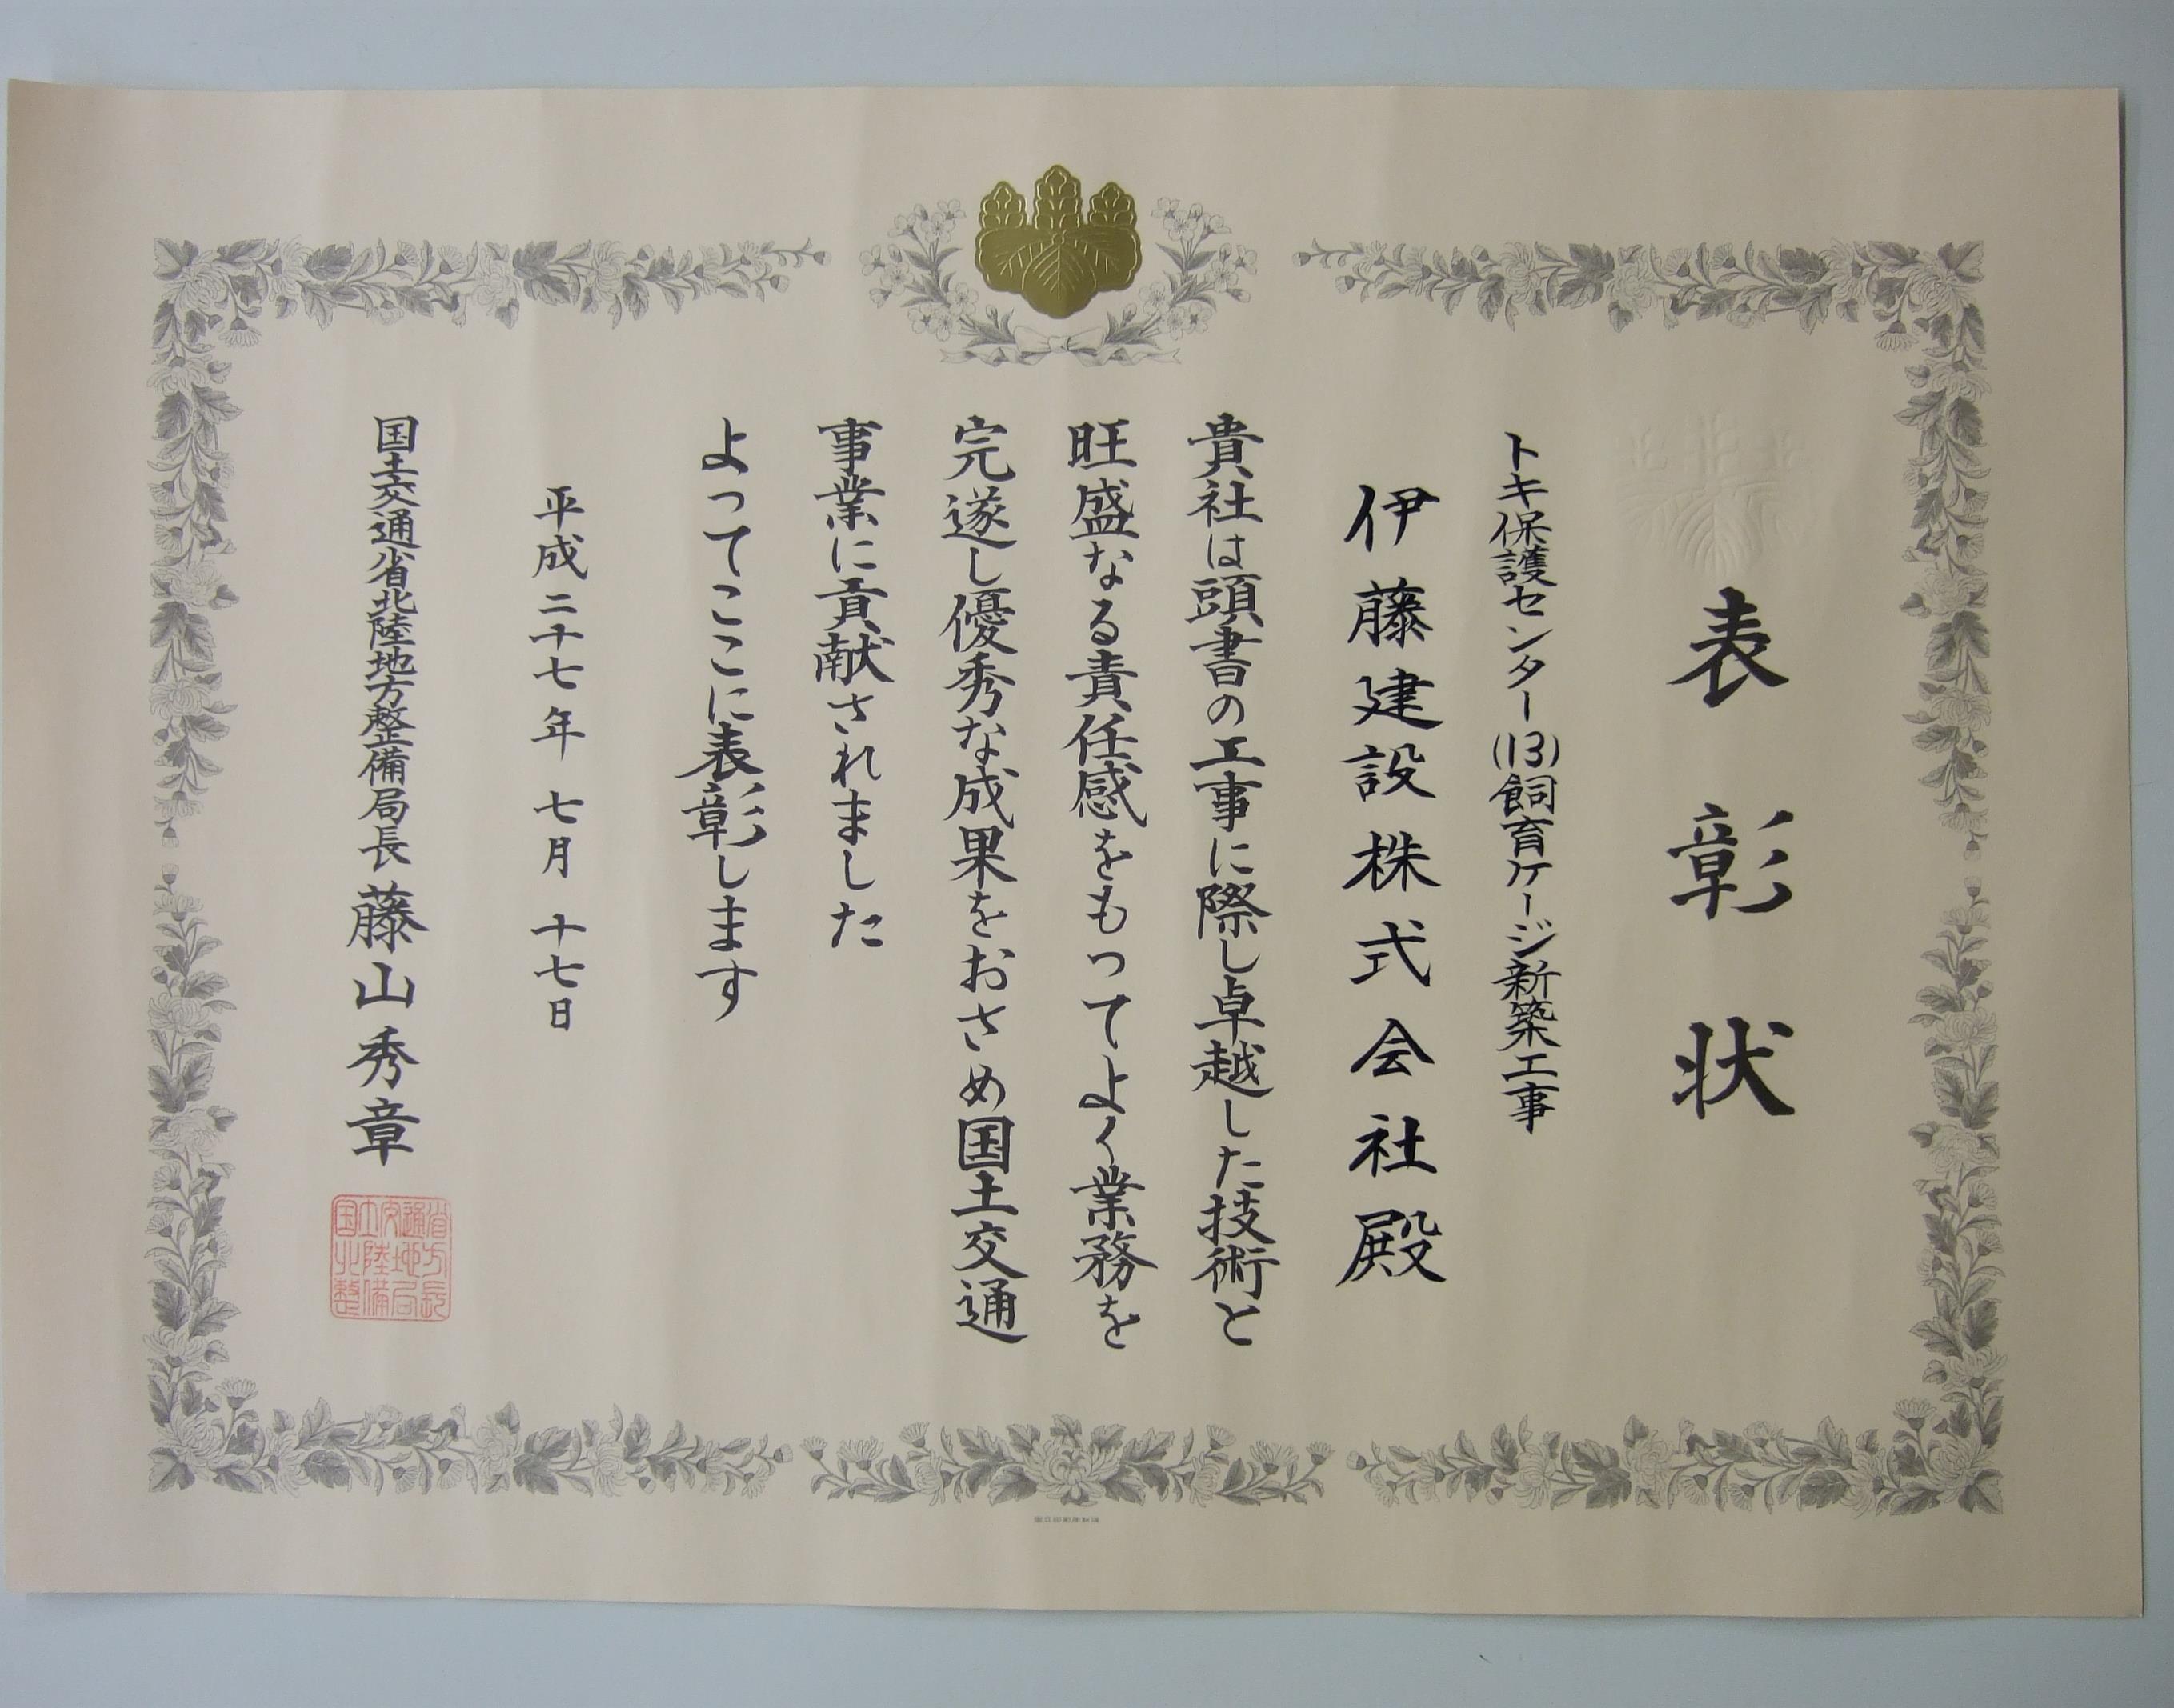 表彰状
トキ保護センター(13)飼育ケージ新築工事
伊藤建設株式会社殿
貴社は頭書の工事に際し卓越した技術と
旺盛なる責任感をもつてよく業務を
完遂し優秀な成果をおさめ国土交通
事業に貢献されました
よってここに表彰します
平成二十七年七月十七日
国土交通省北陸地方整備局長藤山秀章
国土交通省
北陸地方
整備局長